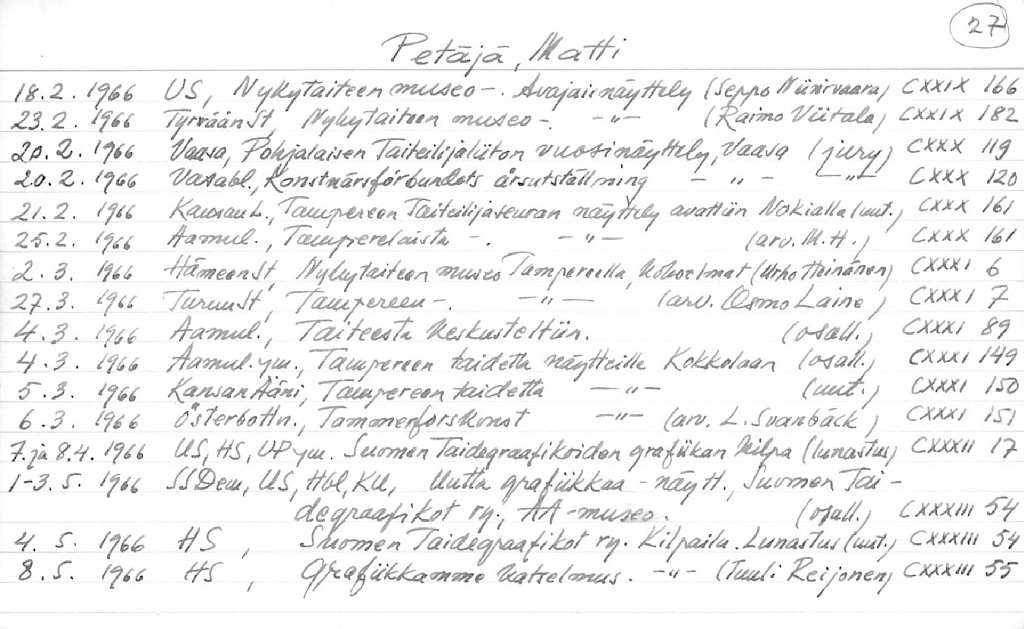 27
Petäjä, Matti
18.2. 1966 US, Nykytaiteen museo -. Avajaisnäyttely (Seppo Niinivaara) CXXIX 166
23.2. 1966 Tyrvään St, Nykytaiteen museo -. -"- (Raimo Viitala) CXXIX 182
20.2. 1966 Vaasa, Pohjalaisen Taiteilijaliiton vuosinäyttely, Vaasa (jury) CXXX 119
20.2. 1966 Vasabl., Konstnärsförbundets årsutställning - " - -"- CXXX 120
21.2. 1966 Kansan L., Tampereen Taiteilijaseuran näyttely avattiin Nokialla (uut.) CXXX 161
25.2. 1966 Aamul., Tamperelaista -. -"- (arv. M.H.) CXXX 161
2. 3. 1966 Hämeen St, Nykytaiteen museo Tampereella, Kokoelmat (Urho Heinänen) CXXXI 6
27.3. 1966 Turun St, Tampereen -. -"- (arv. Osmo Laine) CXXXI 7
4.3. 1966 Aamul., Taiteesta keskusteltiin. (osall.) CXXXI 89
4.3. 1966 Aamul. ym., Tampereen taidetta näytteillä Kokkolaan (osall.) CXXXI 149
5.3. 1966 Kansan Ääni, Tampereen taidetta -"- (uut.) CXXXI 150
6.3. 1966 Österbottn., Tammerforskonst -"- (arv. L. Svanbäck) CXXXI 151
7. ja 8.4. 1966 US, HS, UP ym. Suomen Taidegraafikoiden grafiikan kilpa (lunastus) CXXXII 17
1-3.5. 1966 SSDem, US, Hbl, KU, Uutta grafiikkaa -näytt., Suomen Tai-
degraafikot ry., AA-museo. (osall.) CXXXIII 54
4. 5. 1966 HS, Suomen Taidegraafikot ry. Kilpailu. Lunastus (uut.) CXXXIII 54
8.5. 1966 HS, Grafiikkamme katselmus. -"- (Tuuli Reijonen) CXXXIII 55